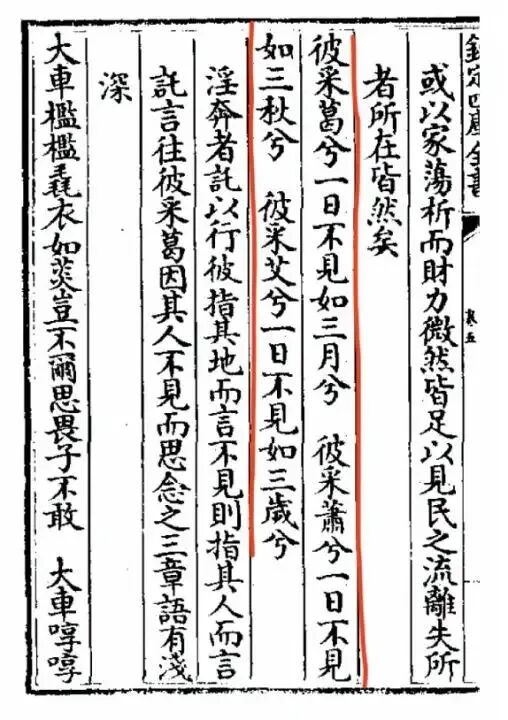 欽定四庫全書
卷五
或以家蕩析而財力微然皆足以見民之流離失所
者所在皆然矣
彼采葛兮一日不見如三月兮　彼采蕭兮一日不見
如三秋兮　彼采艾兮一日不見如三歲兮
淫奔者託以行彼指其地而言不見則指其人而言
託言往彼采葛因其人不見而思念之三章語有淺
深
大車檻檻毳衣如菼豈不爾思畏子不敢　大車啍啍